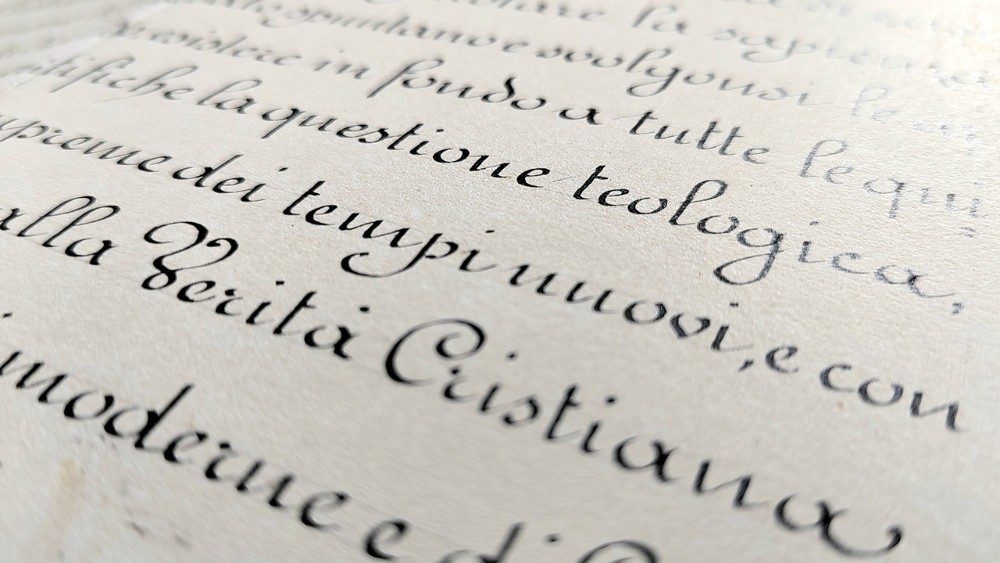 la sapienza
spontanee svolgonsi le
esistere in fondo a tutte le qui
la questione teologica,
supreme dei tempi nuovi, e con
alla Verità Cristiana
moderne e di